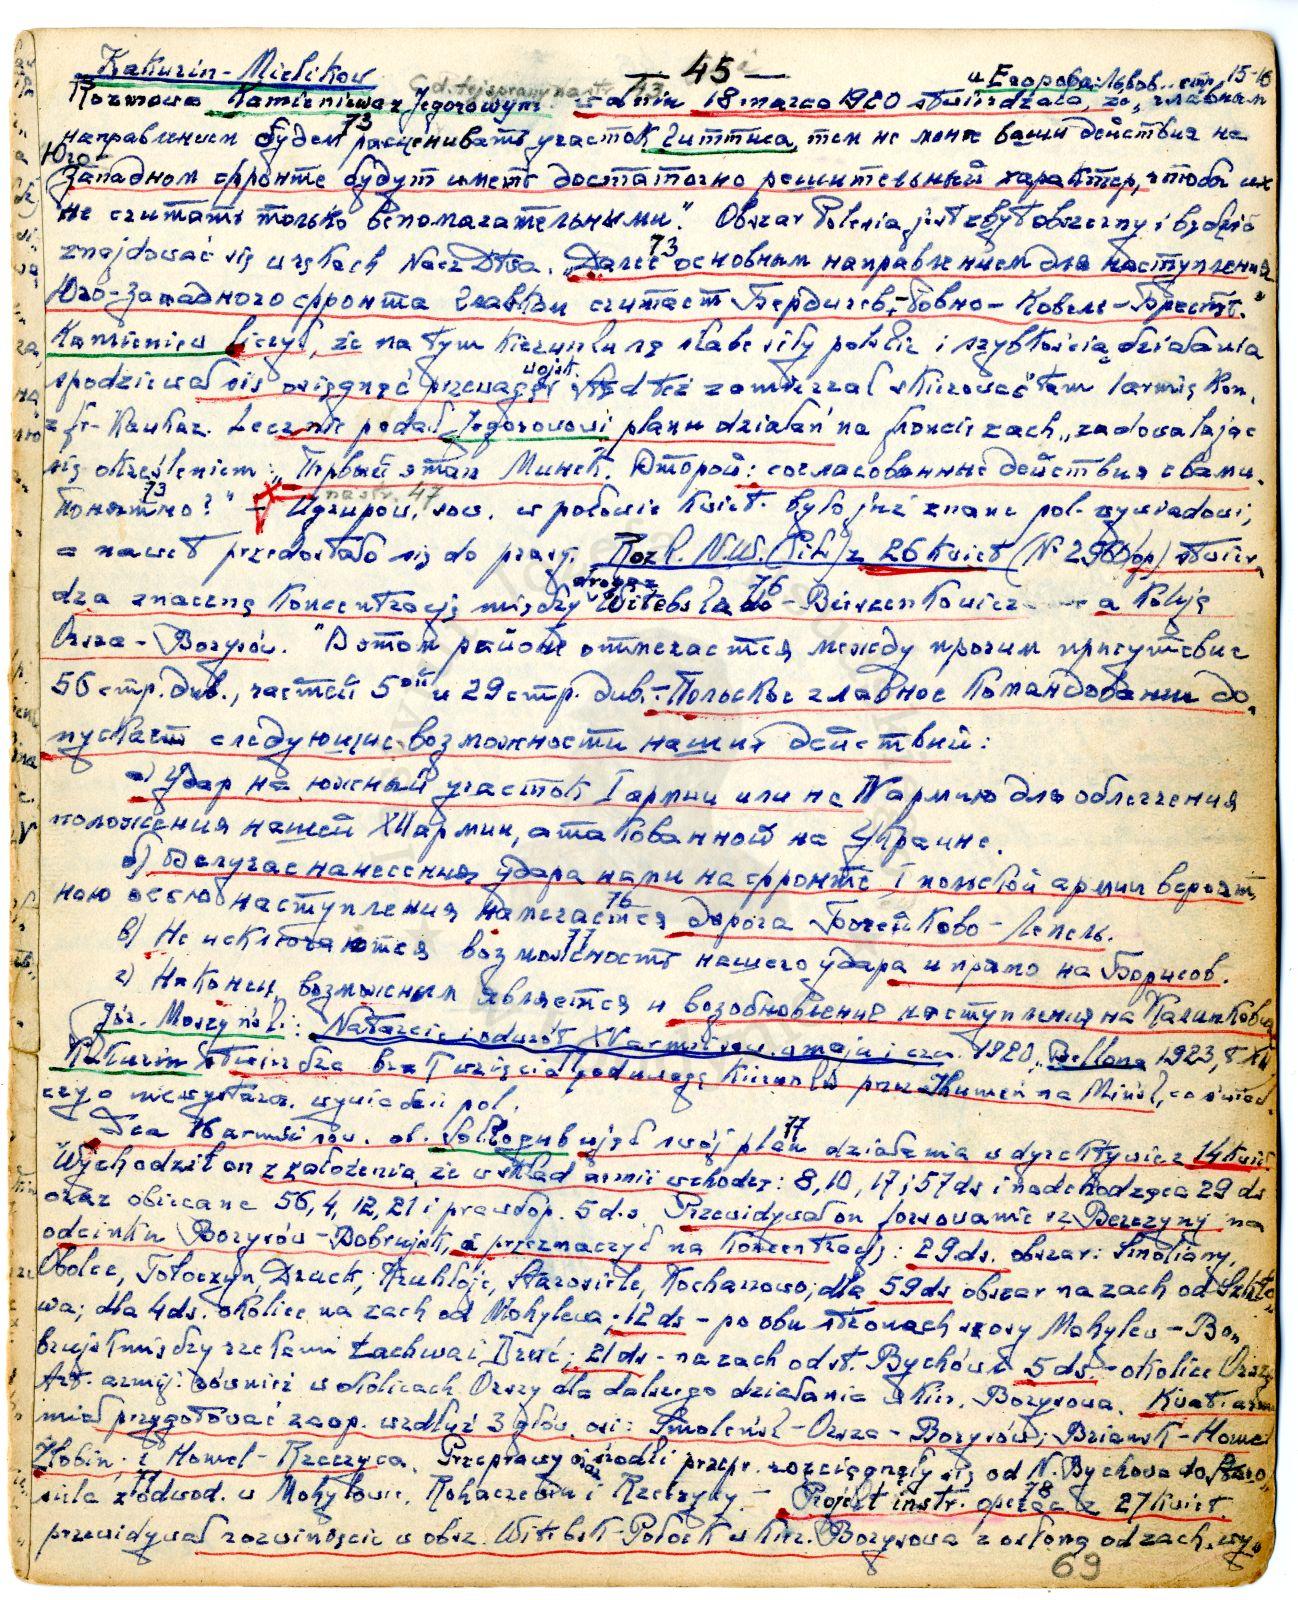 Kakurin-Mielikow
— 45 —
и Егорова: Львов.. стр. 15-16
C.d. tej sprawy na str. 43.
Rozmowa Kamieniewa z Jegorowym: w dniu 18 marca 1920 stwierdzała, że „главным
направлением будем расценивать участок Гиттиса, тем не мене ваши действия на
Юго-
Западном фронте будут иметь достаточно решительный характер, чтобы их
не считать только вспомагательными". Obszar Polesia jest zbyt obszerny i będzie
znajdować się w rękach Nacz Dtwa. „Далее основным направлением для наступления
Юго-Западного фронта Главком считает Бердичев-Ровно-Ковель-Брест."
Kamieniew liczył, że na tym kierunku są słabe siły polskie i szybkością działania
spodziewał się osiągnąć przewagę wojsk. Stąd też zamierzał skierować tam 1 armię Kon.
z fr-Kaukaz. Lecz nie podał Jegorowowi planu działań na froncie zach „zadowalając
się określeniem: „Первый этап Минск. Второй: согласованные действия с вами.
Понятно?" — na str. 47 Ugrupow. sow. w połowie kwiet. było już znane pol. wywiadowi,
a nawet przedostało się do prasy. Rozk. N.W. (Pił) z 26 kwiet (№ 2960/op) stwier-
dza znaczną koncentrację między drogą Witebsk - Bieszenkowicze a koleją
Orsza - Borysów. "В этом районе отмечается между прочим присутствие
56 стр. див., частей 5ой и 29 стр. див. - Польское главное командование до-
пускает следующие возможности наших действий:
а) Удар на южный участок I армии или на IV армию для облегчения
положения нашей XII армии, атакованной на Украине.
б) В случае нанесения удара нами на фронте I польской армии вероят-
ною осью наступления намечается дорога Бочейково - Лепель.
в) Не исключаются возможность нашего удара и прямо на Борисов.
г) Наконец возможным является и возобновление наступления на Калинковичи
Józ. Moszyński: Natarcie i odwrót XV armii sow. w maju i czer. 1920, „Bellona" 1923,
Kakurin stwierdza brak wzięcia pod uwagę kierunku przez Ihumeń na Mińsk, co świad-
czy o niewystarcz. wywiadzie pol.
Dca 16 armii sow. ob. Sołłogub ujął swój plan działania w dyrektywie z 14 kwiet
Wychodził on z założenia, że w skład armii wchodzą: 8, 10, 17 i 57 ds i nadchodząca 29 ds
oraz obiecane 56, 4, 12, 21 i prawdop. 5 d.s. Przewidywał on forsowanie rz Berezyny na
odcinku Borysów - Bobrujsk, a przeznaczył na koncentrację: 29 ds. obszar: Smoliany,
Obolce, Tołoczyn, Druck, Kruhłoje, Starosiele, Kochanowo, dla 59 ds obszar na zach od Szkło-
wa; dla 4 ds. okolice na zach od Mohylewa; 12 ds - po obu stronach szosy Mohylew - Bob
brujsk między rzekami Łachwa i Druć; 21 ds - na zach od st. Bychów i 5 ds. - okolice Orszy
Art. armij. również w okolicach Orszy dla dalszego działania w kier. Borysowa. Kwat. armii
miał przygotować zaop. wzdłuż 3 głów. osi: Smoleńsk - Orsza - Borysów; Briańsk - Homel
Żłobin i Homel - Rzeczyca. Przeprawy i środki przepr. rozciągnęły się od N. Bychowa do Staro-
siela z odwod. w Mohylowie, Rohaczewie i Rzeczycy. - Projekt instr. operac z 27 kwiet
przewidywał rozwinięcie w obsz. Witebsk - Połock w kier. Borysowa z osłoną od zach. wy-
69